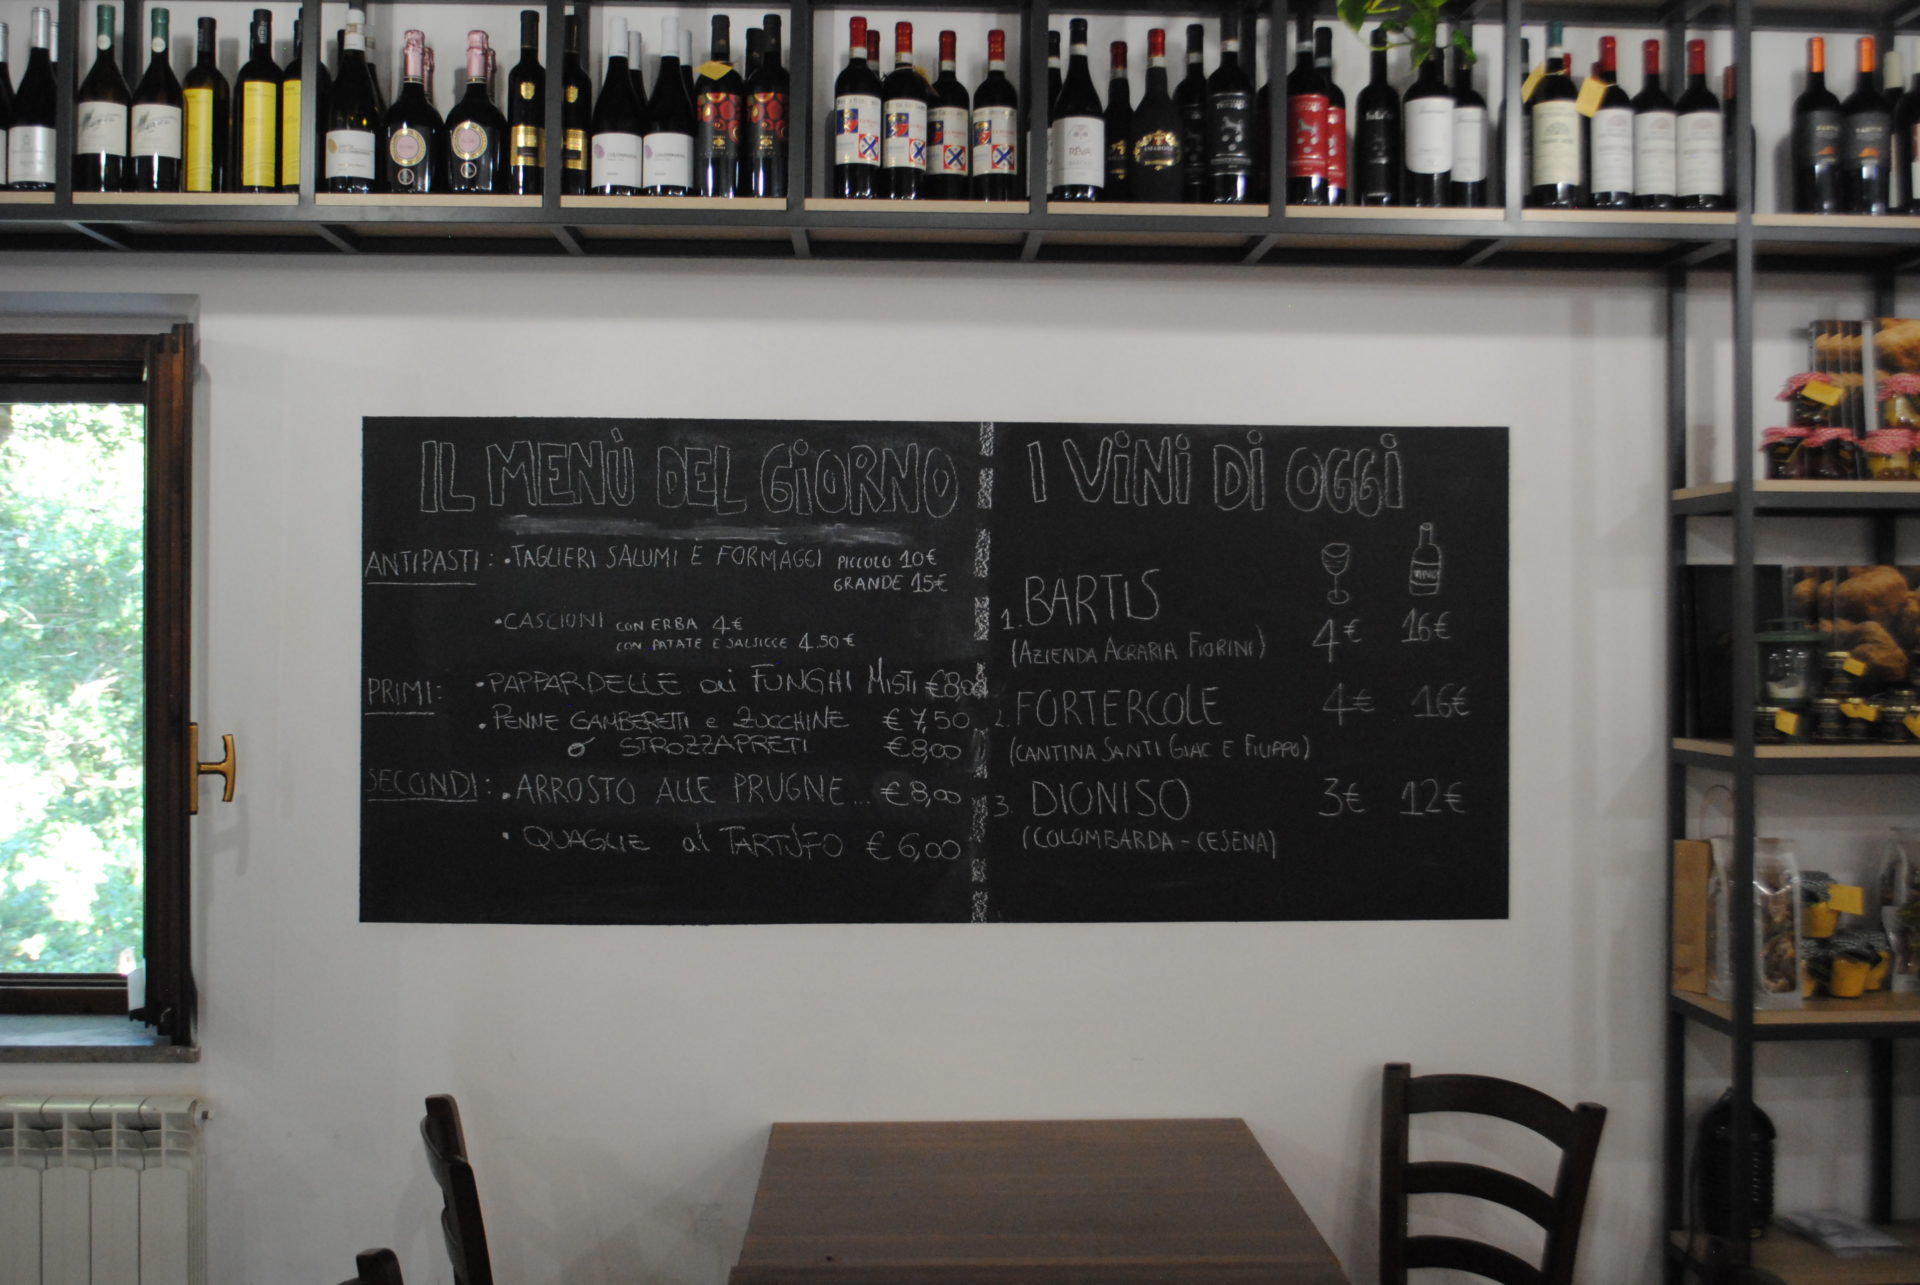 IL MENÙ DEL GIORNO
ANTIPASTI: • TAGLIERI SALUMI E FORMAGGI PICCOLO 10€
GRANDE 15€
• CASCIONI CON ERBA 4€
CON PATATE E SALSICCE 4.50€
PRIMI: • PAPPARDELLE ai FUNGHI MISTI €8,00
• PENNE GAMBERETTI e ZUCCHINE € 7,50
o STROZZAPRETI €8,00
SECONDI: • ARROSTO ALLE PRUGNE... €8,00
• QUAGLIE al TARTUFO € 6,00
I VINI DI OGGI
VINO
1. BARTIS 4€ 16€
(AZIENDA AGRARIA FIORINI)
2. FORTERCOLE 4€ 16€
(CANTINA SANTI GIAC E FILIPPO)
3. DIONISO 3€ 12€
(COLOMBARDA - CESENA)
COLOMBARDA
COLOMBARDA
RÉVA
BARTIS
BARTIS